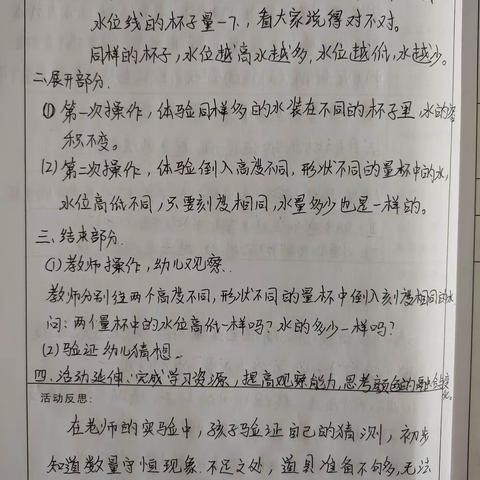 水位线的杯子量一下,看大家说得对不对。
同样的杯子,水位越高水越多,水位越低,水越少。
二、展开部分.
(1) 第一次操作,体验同样多的水装在不同的杯子里,水的容
积不变。
(2) 第二次操作,体验倒入高度不同,形状不同的量杯中的水,
水位高低不同,只要刻度相同,水量多少也是一样的。
三、结束部分.
(1)教师操作,幼儿观察.
教师分别往两个高度不同,形状不同的量杯中倒入刻度相同的水
问:两个量杯中的水位高低一样吗?水的多少一样吗?
(2)验证幼儿猜想。
四、活动延伸:完成学习资源,提高观察能力,思考颜色的融合
活动反思:
在老师的实验中,孩子验证自己的猜测,初步
知道数量守恒现象.不足之处,道具准备不够多,无法